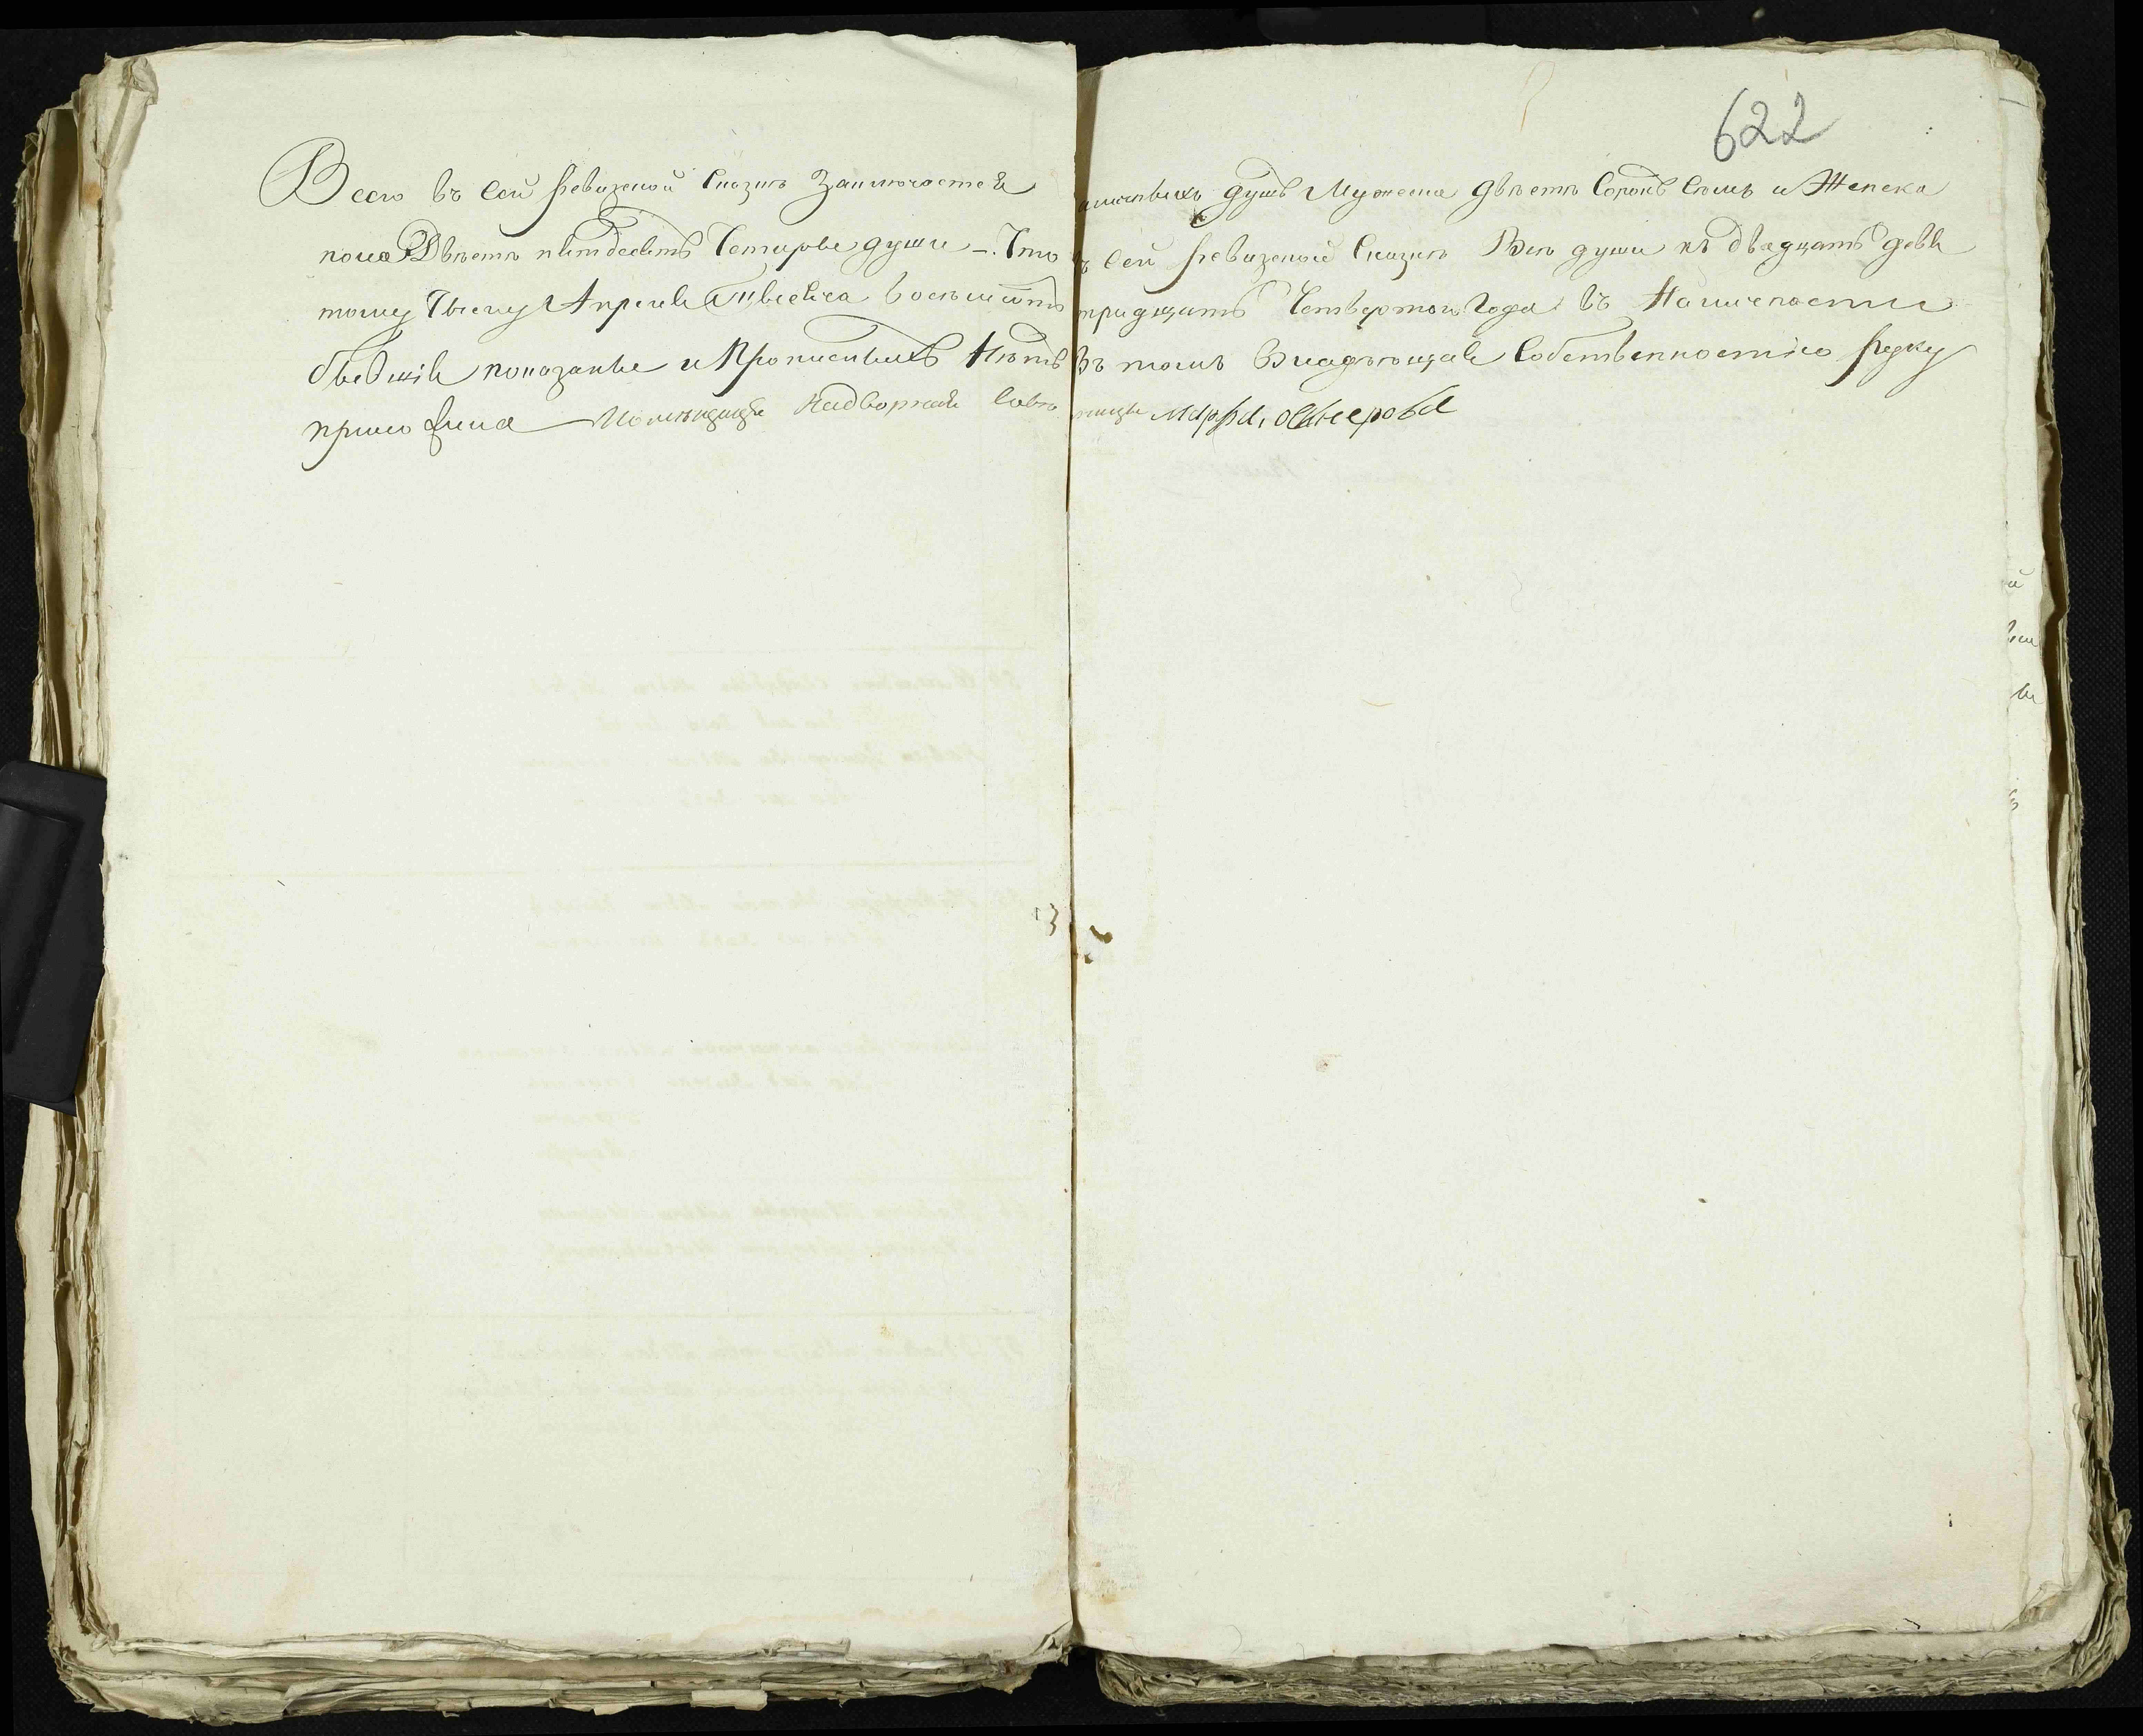 622
Всего въ сей ревизской сказке заключается наличныхъ душъ Мужеска двести сорокъ семь и Женска
пола Двести пятдесятъ Четыре души — Что в сей ревизской сказке Все души къ двадцать девя
тому Числу Апреля Тысеча восемьсотъ тридцать Четвертого Года въ Наличности
бывшия показаны и Прописныхъ Нетъ въ томъ Владеющая Собственностию руку
приложила Помещица Надворная Советница Марфа